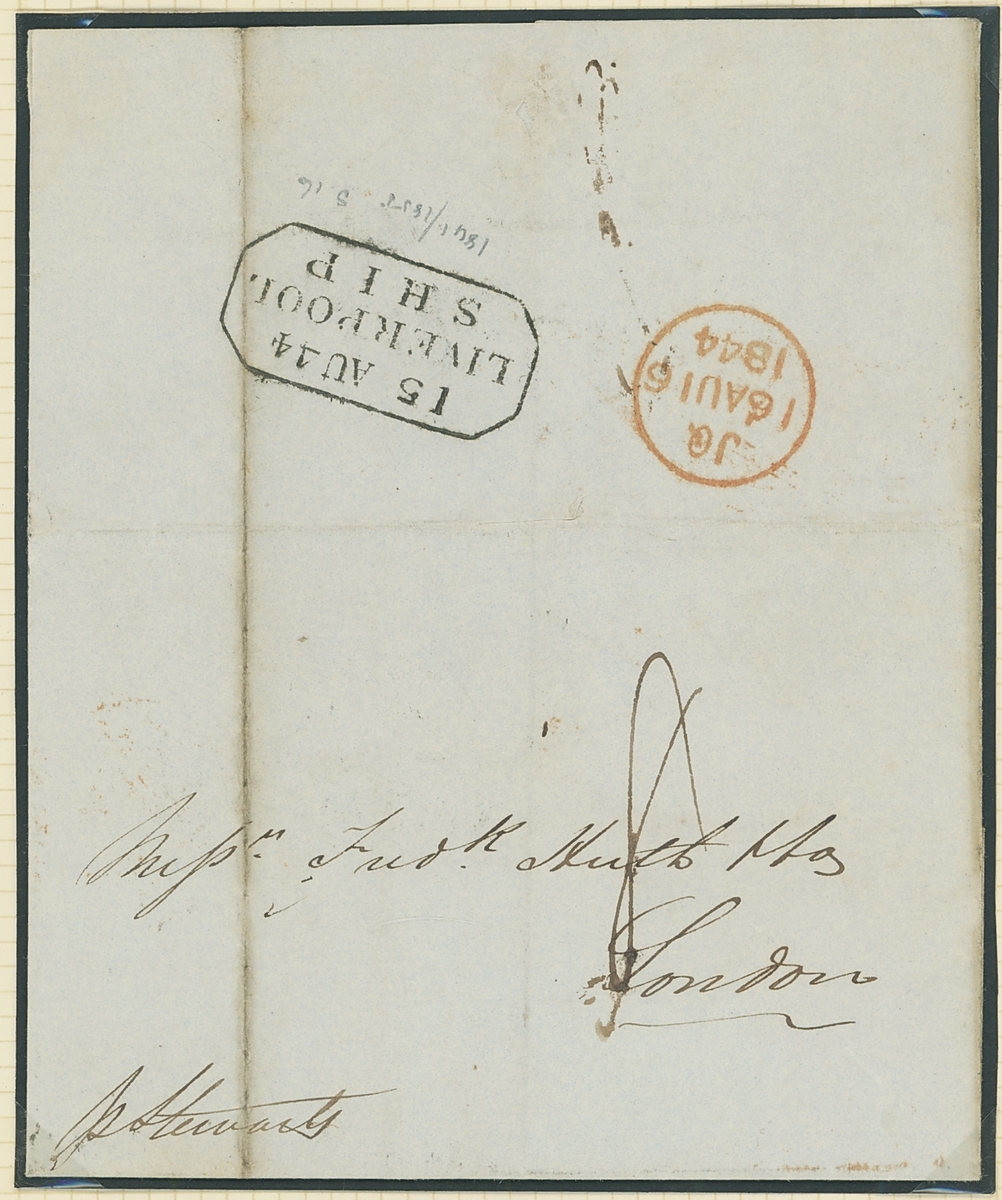 1841/1855 S.16
15 AU 44
LIVERPOOL
SHIP
JQ
16 AU 16
1844
8
Mess.rs Fredk. Huth & Co
London
p Stewarts